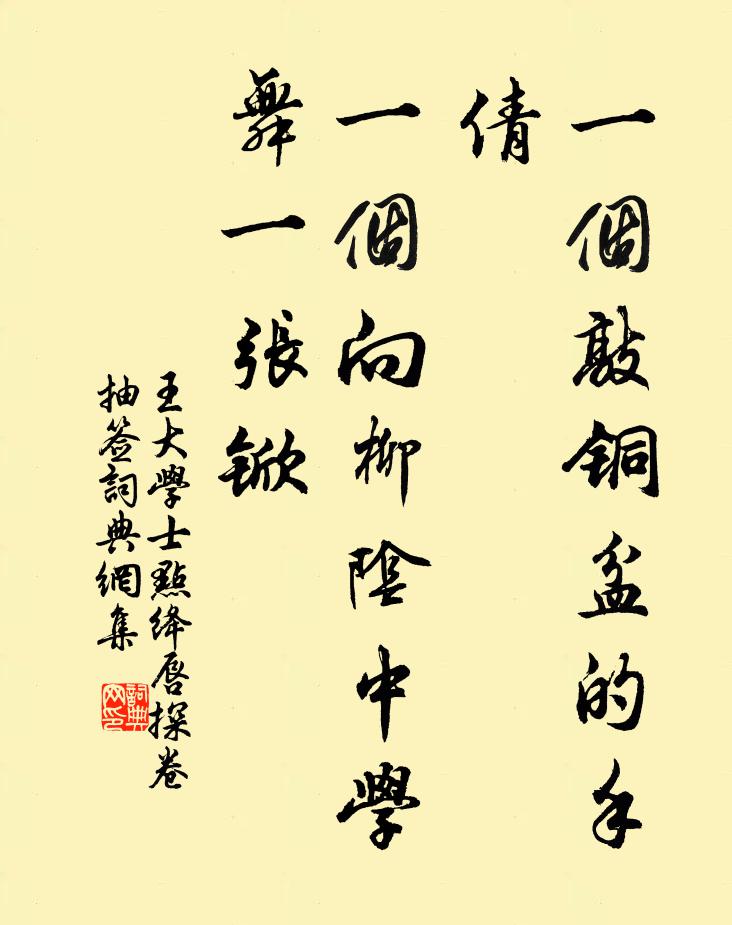 一個敲銅盆的手
倩
一個向柳陰中學
舞一張鍁
王大學士點絳唇探卷
抽签詞典網集
詞典
网印